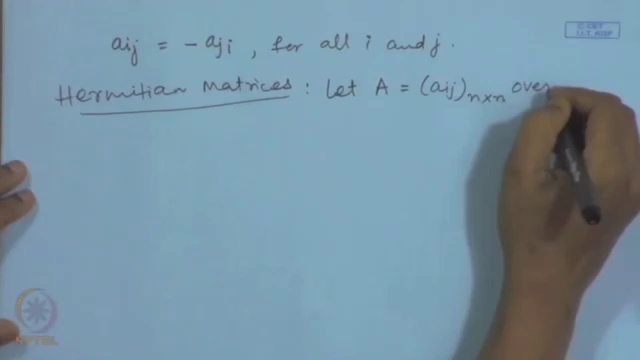 aij = - aji , for all i and j.
Hermitian Matrices : Let A = (aij)n×n over
© CET
I.I.T. KGP
NPTEL